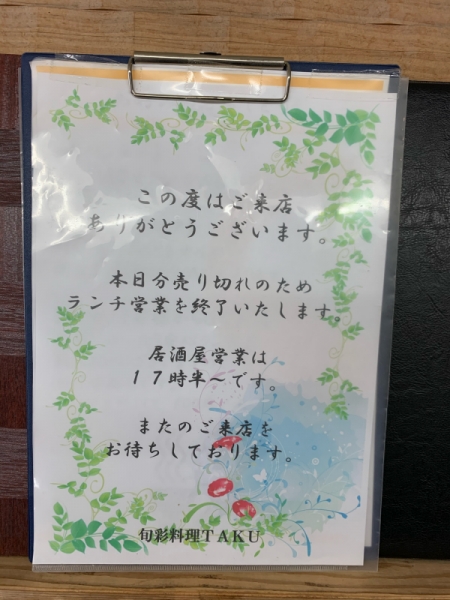 この度はご来店
ありがとうございます。
本日分売り切れのため
ランチ営業を終了いたします。
居酒屋営業は
１７時半〜です。
またのご来店を
お待ちしております。
旬彩料理ＴＡＫＵ